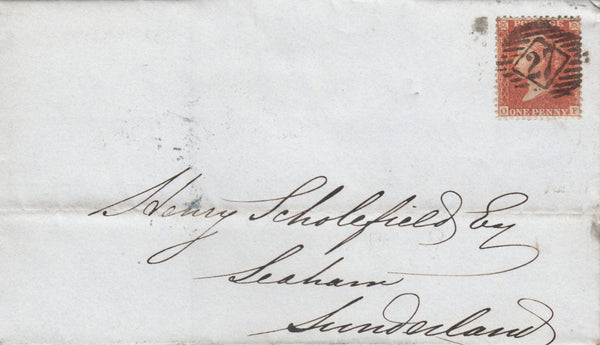 POSTAGE
27
O ONE PENNY F
Henry Scholefield Esq
Seaham
Sunderland